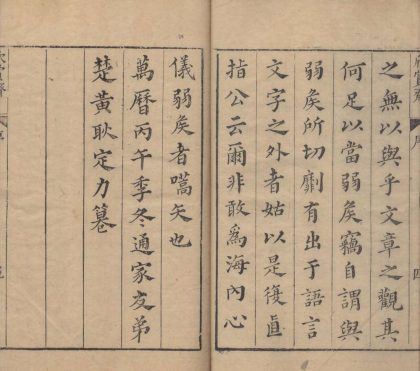 之無以與乎文章之觀其
何足以當弱矦竊自謂與
弱矦所切劘有出于語言
文字之外者姑以是復直
指公云爾非敢爲海內心
儀弱矦者嚆矢也
萬曆丙午季冬通家友弟
楚黃耿定力篹